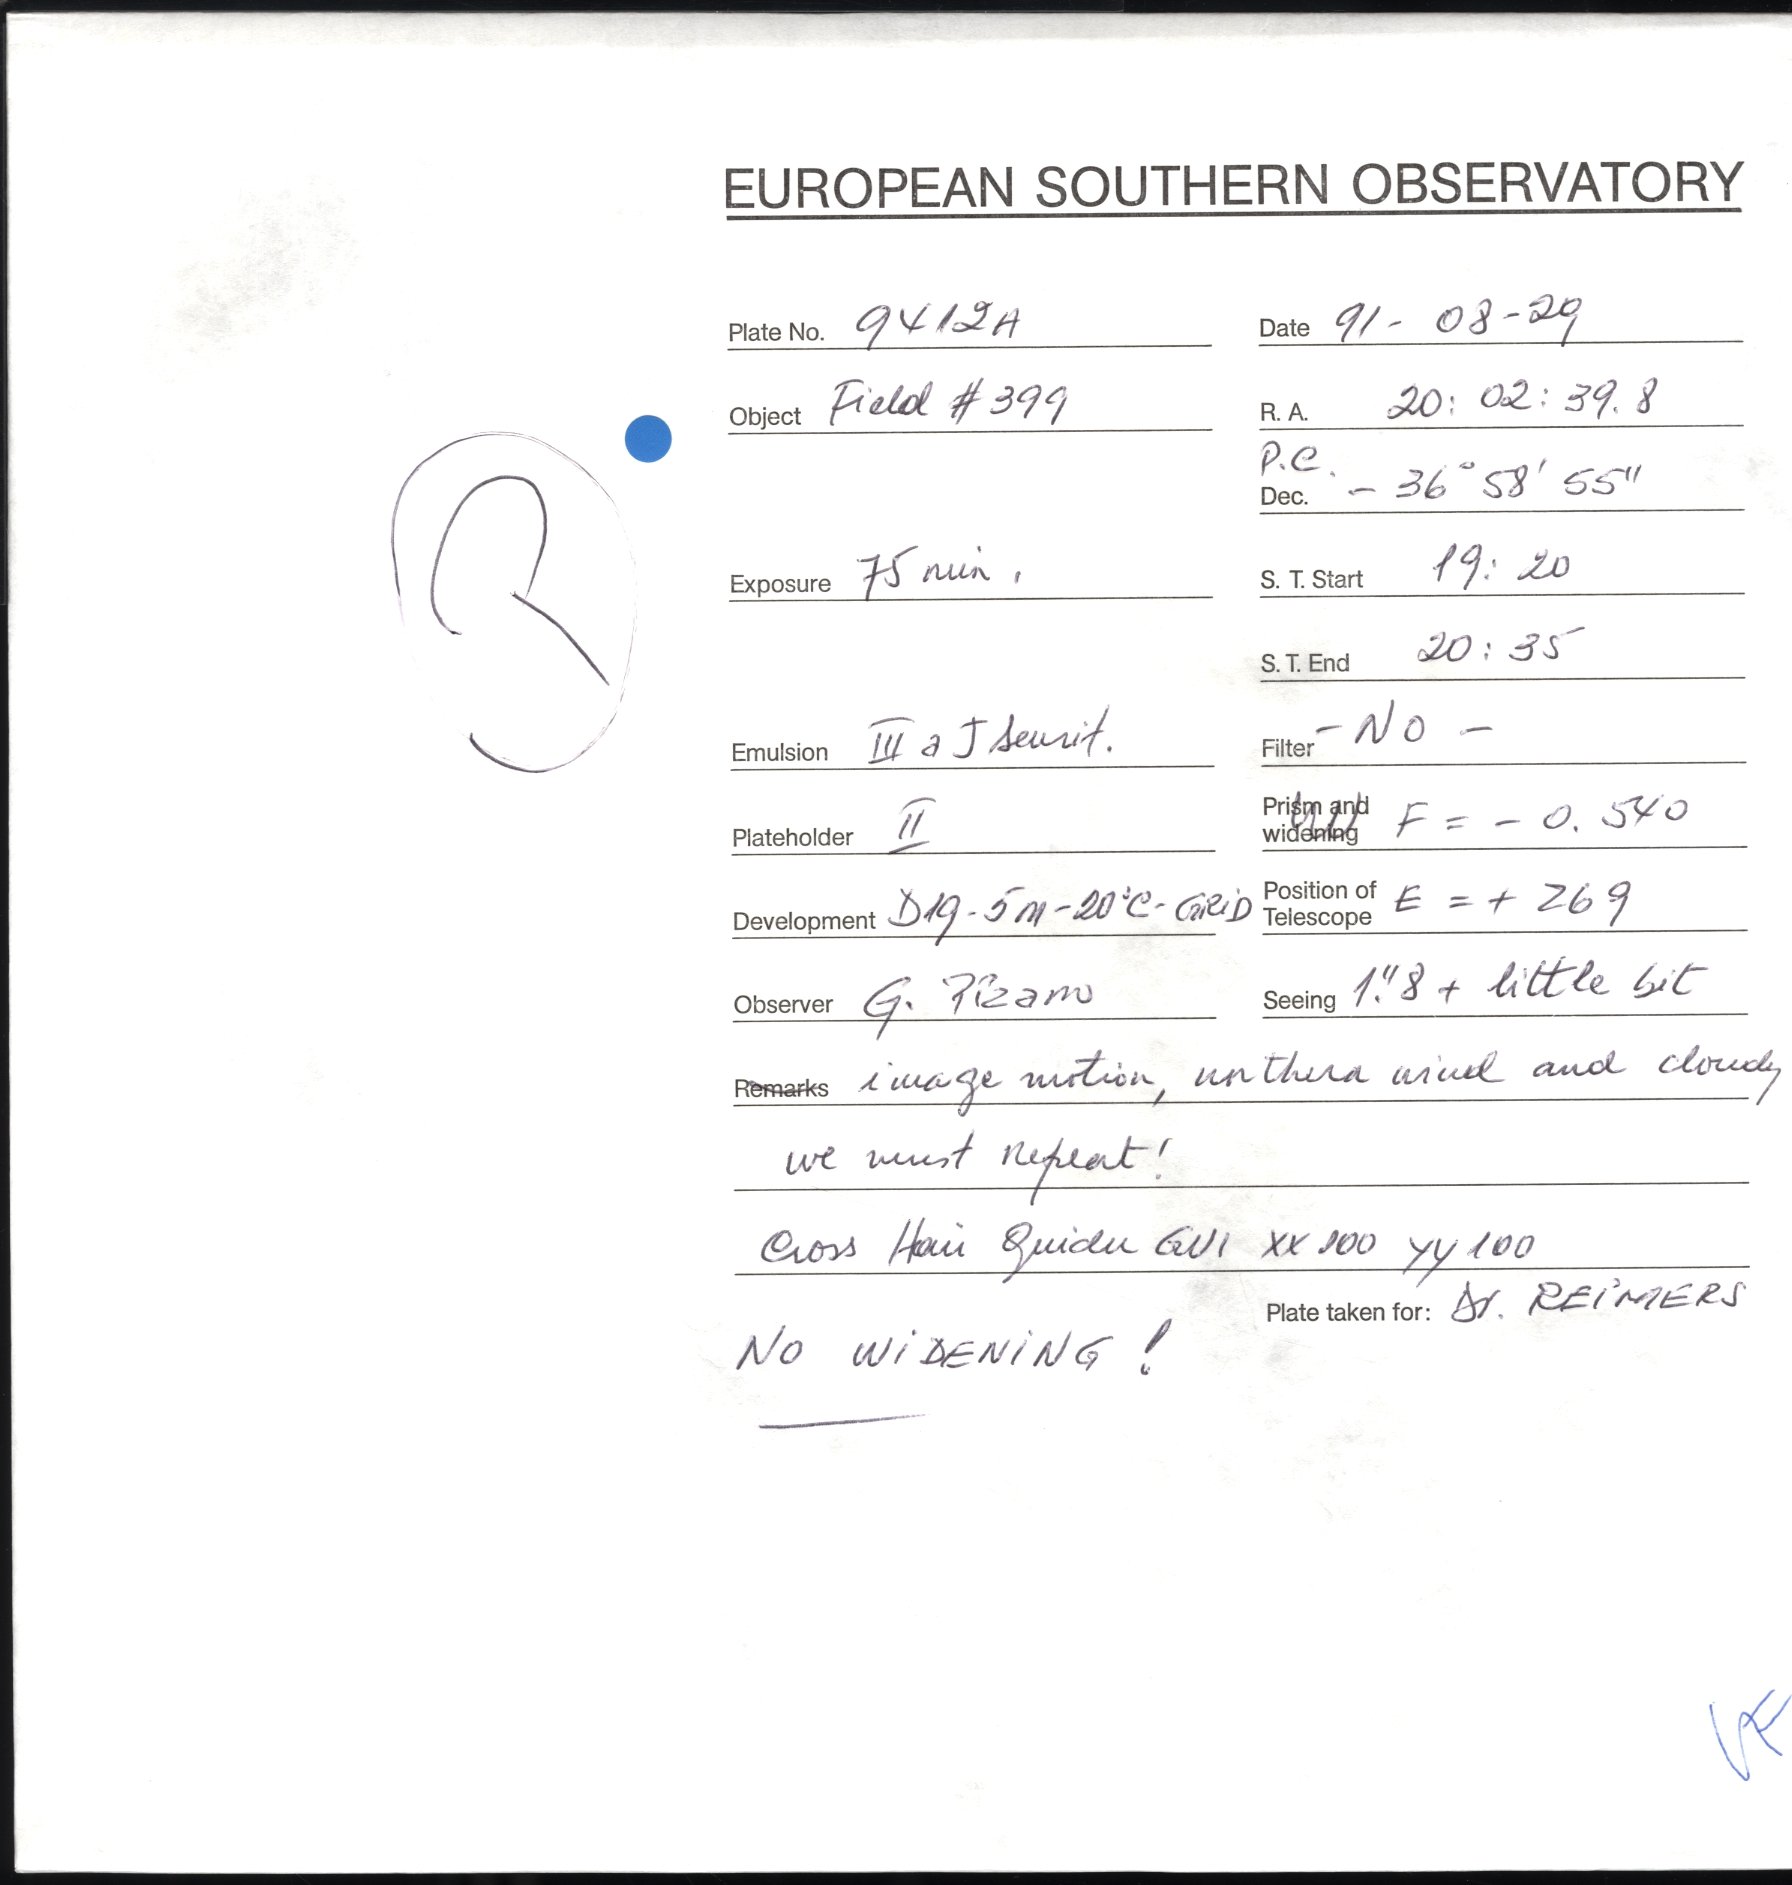 EUROPEAN SOUTHERN OBSERVATORY
Plate No. 9412A Date 91-08-29
Object Field #399 R. A. 20:02:39.8
P.C.
Dec. -36°58'55"
Exposure 75 min. S. T. Start 19:20
S. T. End 20:35
Emulsion III a J Filter -NO-
Plateholder II Prism and widening F = -0.540
Development D19-5m-20°C-GRiD Position of Telescope E = + 269
Observer G. Pizarro Seeing 1."8 + little bit
Remarks image motion, northern wind and cloudy
we must repeat!
Cross Hair Guider GV1 XX 100 YY 100
Plate taken for: Dr. REiMERS
NO WiDENiNG!